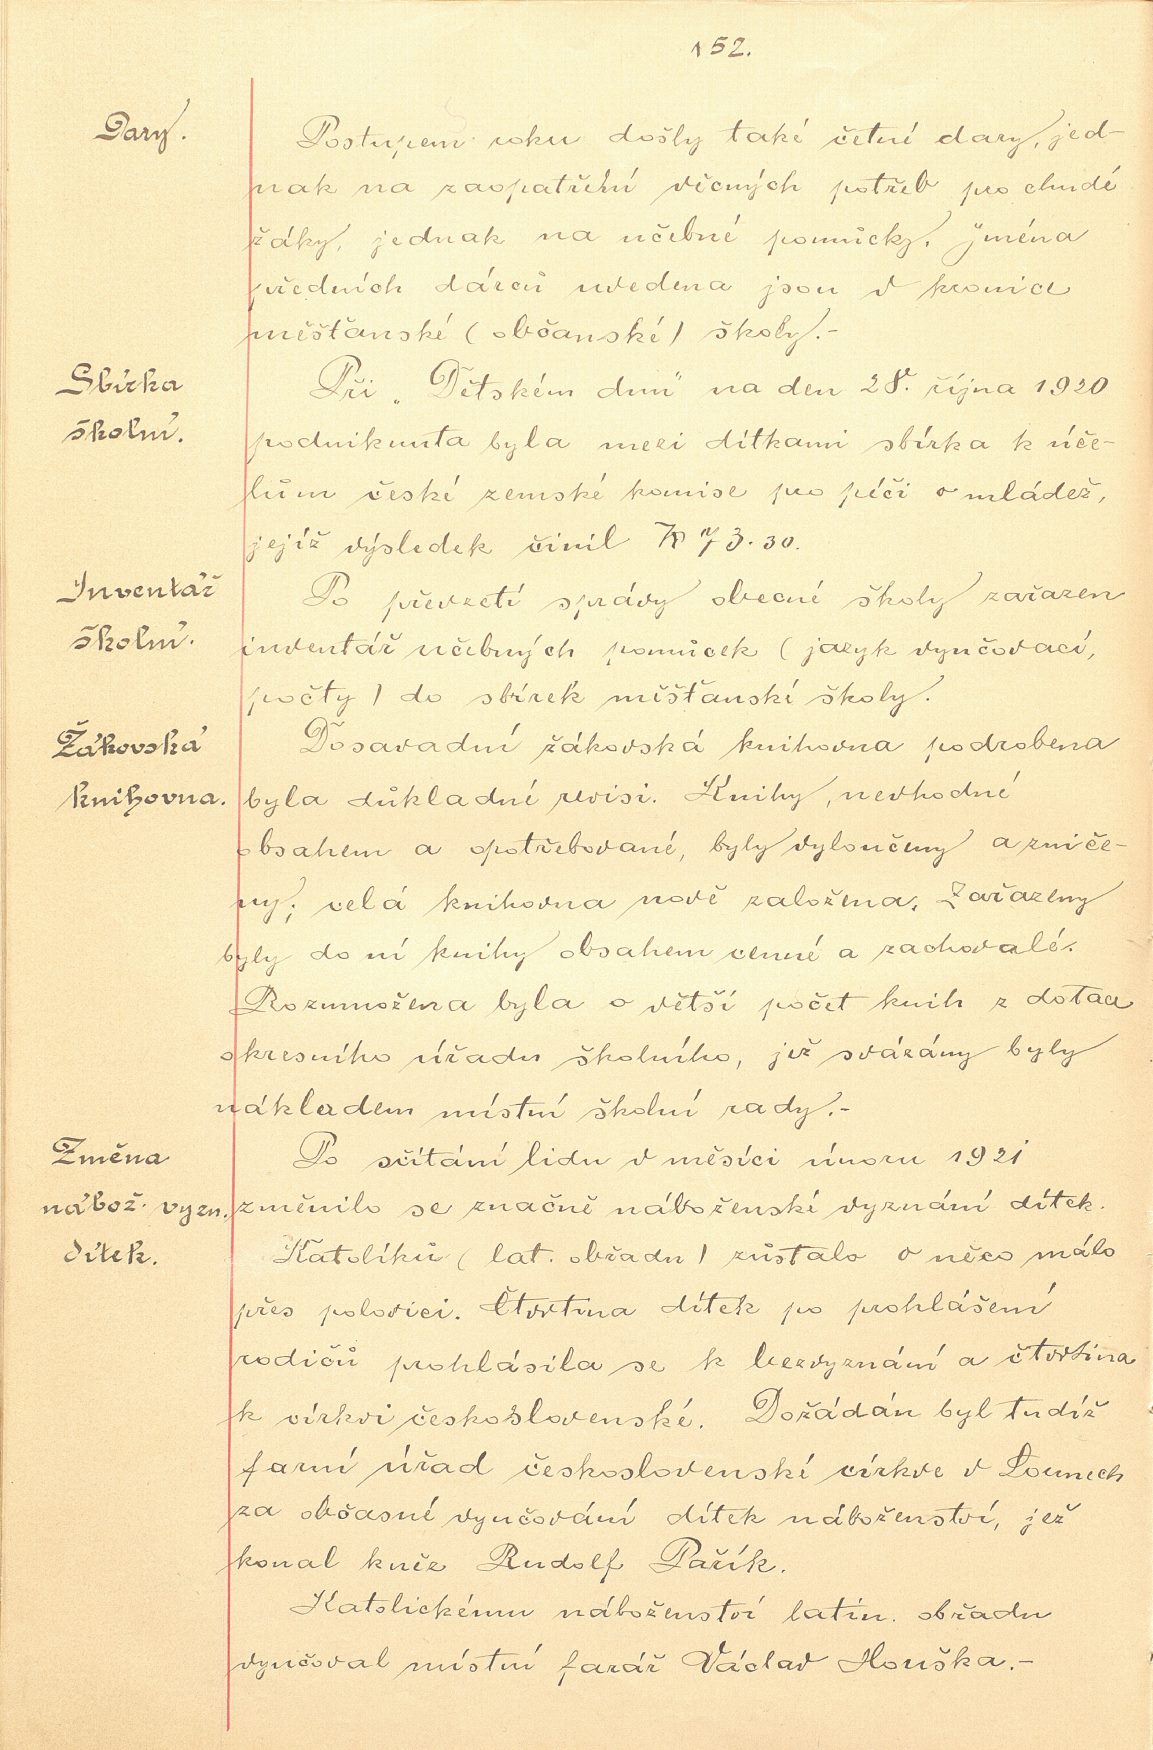 152.
Dary.
Postupem roku došly také četné dary, jed-
nak na zaopatření věcných potřeb pro chudé
žáky, jednak na učebné pomůcky. Jména
předních dárců uvedena jsou v kronice
měšťanské (občanské) školy.-
Sbírka
školní.
Při „Dětském dnu" na den 28. října 1920
podniknuta byla mezi dítkami sbírka k úče-
lům české zemské komise pro péči o mládež,
jejíž výsledek činil K 73.30.
Inventář
školní.
Po převzetí správy obecné školy zařazen
inventář učebných pomůcek (jazyk vyučovací,
počty) do sbírek měšťanské školy.
Žákovská
knihovna.
Dosavadní žákovská knihovna podrobena
byla důkladné revisi. Knihy, nevhodné
obsahem a opotřebované, byly vyloučeny a zniče-
ny; celá knihovna nově založena. Zařazeny
byly do ní knihy obsahem cenné a zachovalé.
Rozmnožena byla o větší počet knih z dotace
okresního úřadu školního, jež svázány byly
nákladem místní školní rady.-
Změna
nábož. vyzn.
dítek.
Po sčítání lidu v měsíci únoru 1921
změnilo se značně náboženské vyznání dítek.
Katolíků (lat. obřadu) zůstalo o něco málo
přes polovici. Čtvrtina dítek po prohlášení
rodičů prohlásila se k bezvyznání a čtvrtina
k církvi československé. Dožádán byl tudíž
farní úřad československé církve v Lounech
za občasné vyučování dítek náboženství, jež
konal kněz Rudolf Pařík.
Katolickému náboženství latin. obřadu
vyučoval místní farář Václav Houška.-